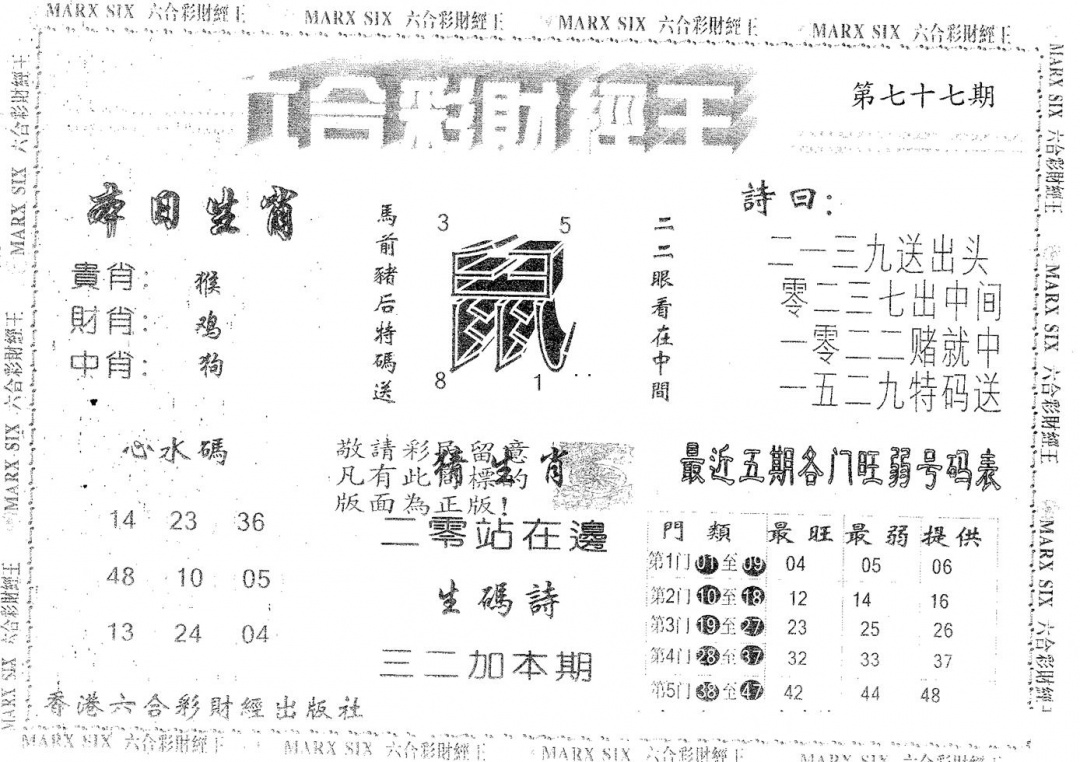 MARX SIX 六合彩財經王 MARX SIX 六合彩財經王 MARX SIX 六合彩財經王 MARX SIX 六合彩財經王
六合彩財經王
第七十七期
本日生肖
貴肖：猴
財肖：鸡
中肖：狗
馬前豬后特碼送
3 5
鼠
8 1
二二眼看在中間
詩曰：
二一三九送出头
零二三七出中间
一零二二赌就中
一五二九特码送
心水碼
14 23 36
48 10 05
13 24 04
敬請彩民留意
凡有此商標的
版面為正版！
猜生肖
二零站在邊
生碼詩
三二加本期
最近五期各门旺弱号码表
門類 最旺 最弱 提供
第1门 01至09 04 05 06
第2门 10至18 12 14 16
第3门 19至27 23 25 26
第4门 28至37 32 33 37
第5门 38至47 42 44 48
香港六合彩財經出版社
MARX SIX 六合彩財經王 MARX SIX 六合彩財經王 MARX SIX 六合彩財經王 MARX SIX 六合彩財經王
MARX SIX 六合彩財經王 MARX SIX 六合彩財經王 MARX SIX 六合彩財經王
MARX SIX 六合彩財經王 MARX SIX 六合彩財經王 MARX SIX 六合彩財經王